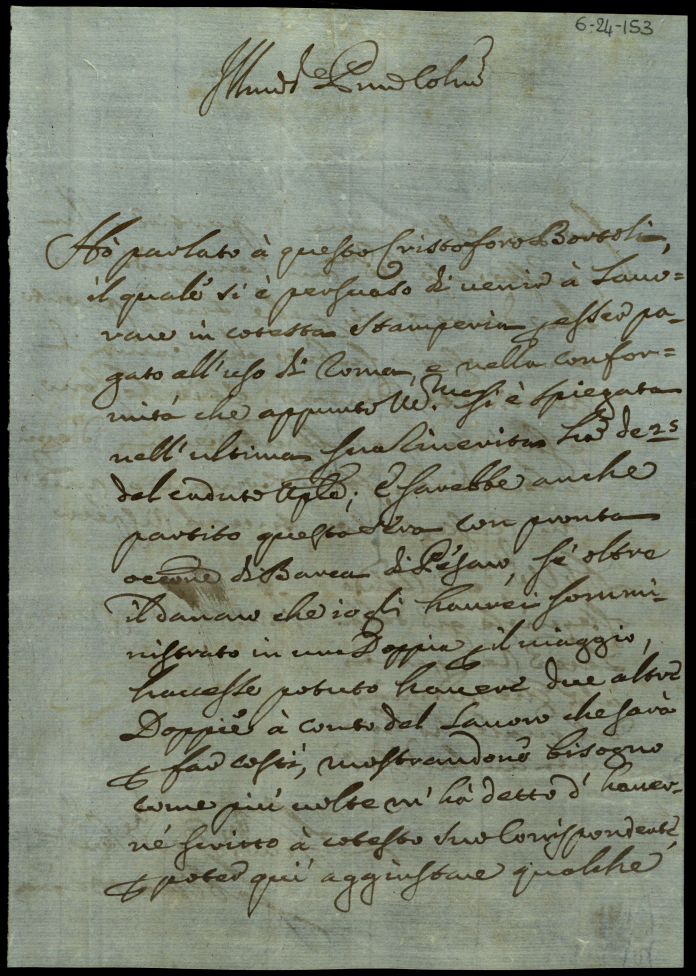 6-24-153
Hò parlato à questo Cristoforo Bortoli,
il quale si è persuaso di venir à Lavo=
rare in cotesta Stamperia, esser pa-
gato all'uso di Roma, e nella confor=
mità che appunto si è spiegata
nell'ultima sua de 25
del caduto; e sarebbe anche
partito questa sera con pronta
occ.ne di Barca di Pesaro, sé oltre
il danaro che io gli haurei sommi-
nistrato in una Doppia il viaggio,
hauesse potuto hauere due altre
Doppie à conto del Lauoro che sarà
ꝑ far costì, mostrandone bisogno
come più uolte m'hà detto d'hauer-
né scritto à cotesto suo Corrispondente,
ꝑ poter quì aggiustare qualche